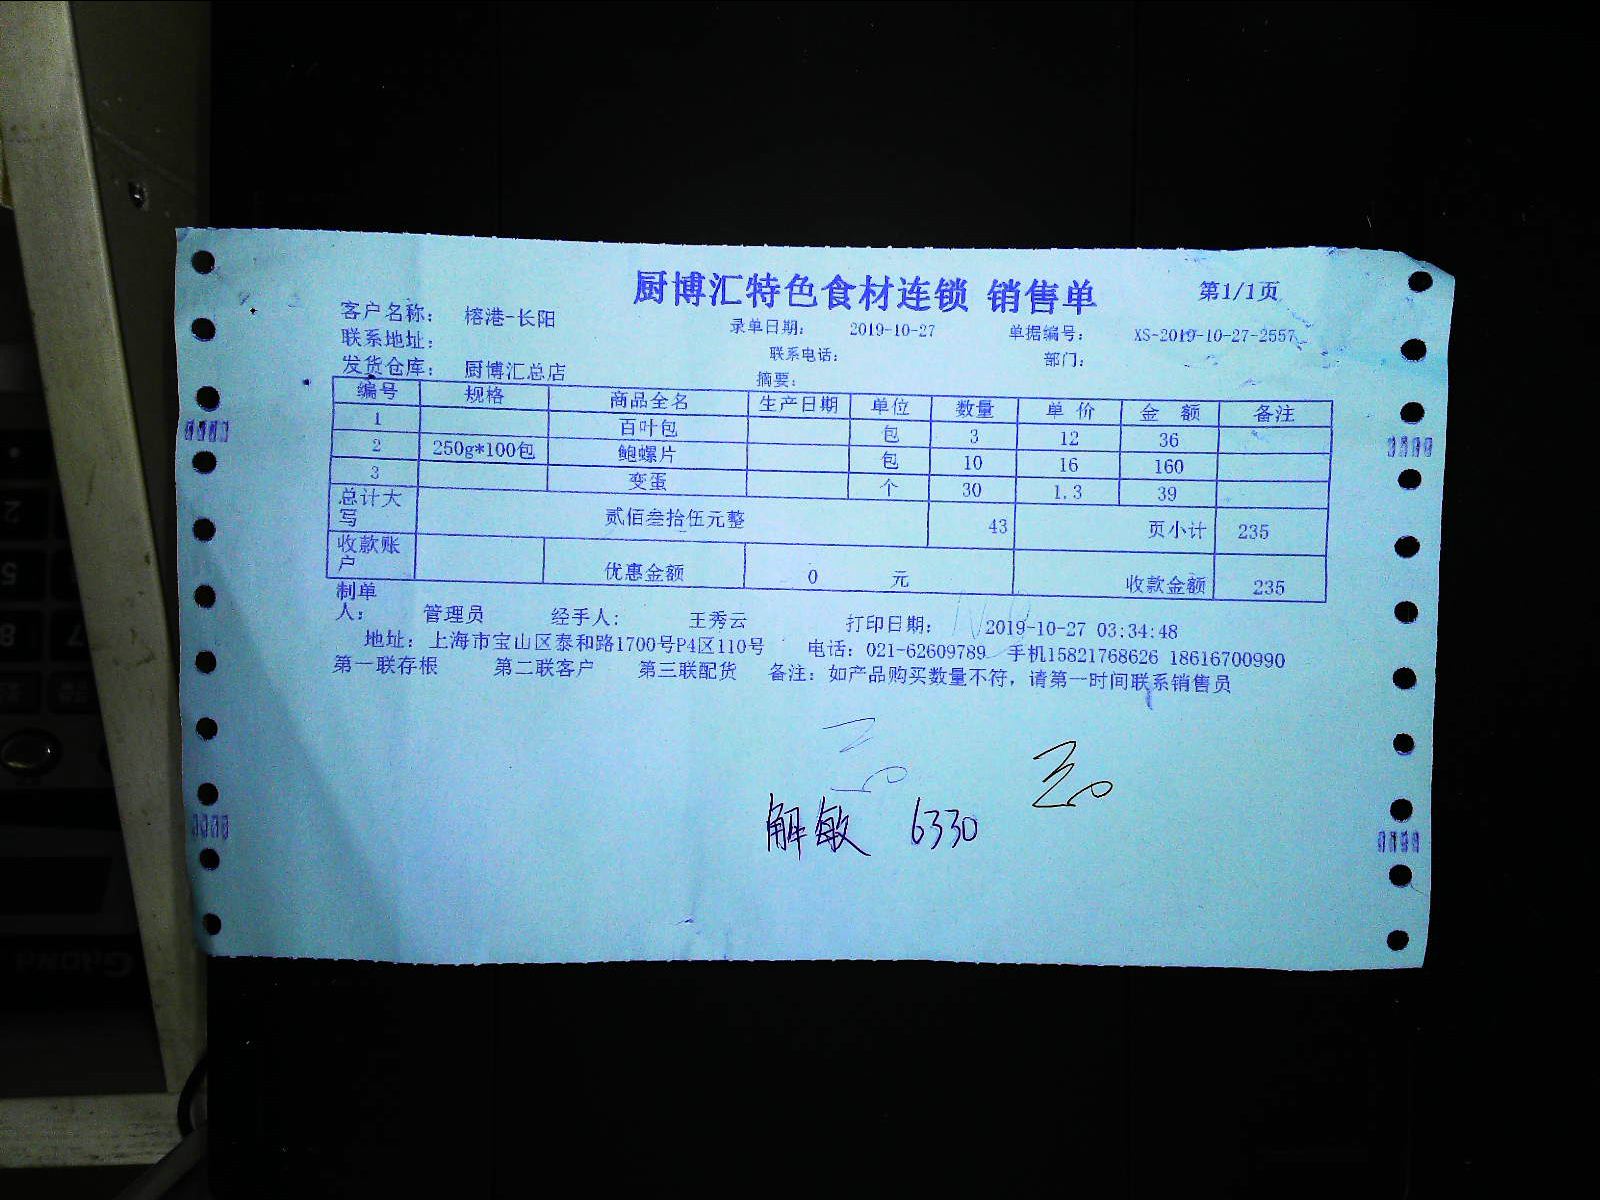 厨博汇特色食材连锁 销售单 第1/1页
客户名称： 榕港-长阳 录单日期： 2019-10-27 单据编号： XS-2019-10-27-2557
联系地址： 联系电话： 部门：
发货仓库： 厨博汇总店 摘要：
编号 规格 商品全名 生产日期 单位 数量 单 价 金 额 备注
1 百叶包 包 3 12 36
2 250g*100包 鲍螺片 包 10 16 160
3 变蛋 个 30 1.3 39
总计大写 贰佰叁拾伍元整 43 页小计 235
收款账户 优惠金额 0 元 收款金额 235
制单人： 管理员 经手人： 王秀云 打印日期： 2019-10-27 03:34:48
地址：上海市宝山区泰和路1700号P4区110号 电话：021-62609789 手机15821768626 18616700990
第一联存根 第二联客户 第三联配货 备注：如产品购买数量不符，请第一时间联系销售员
解敏 6330